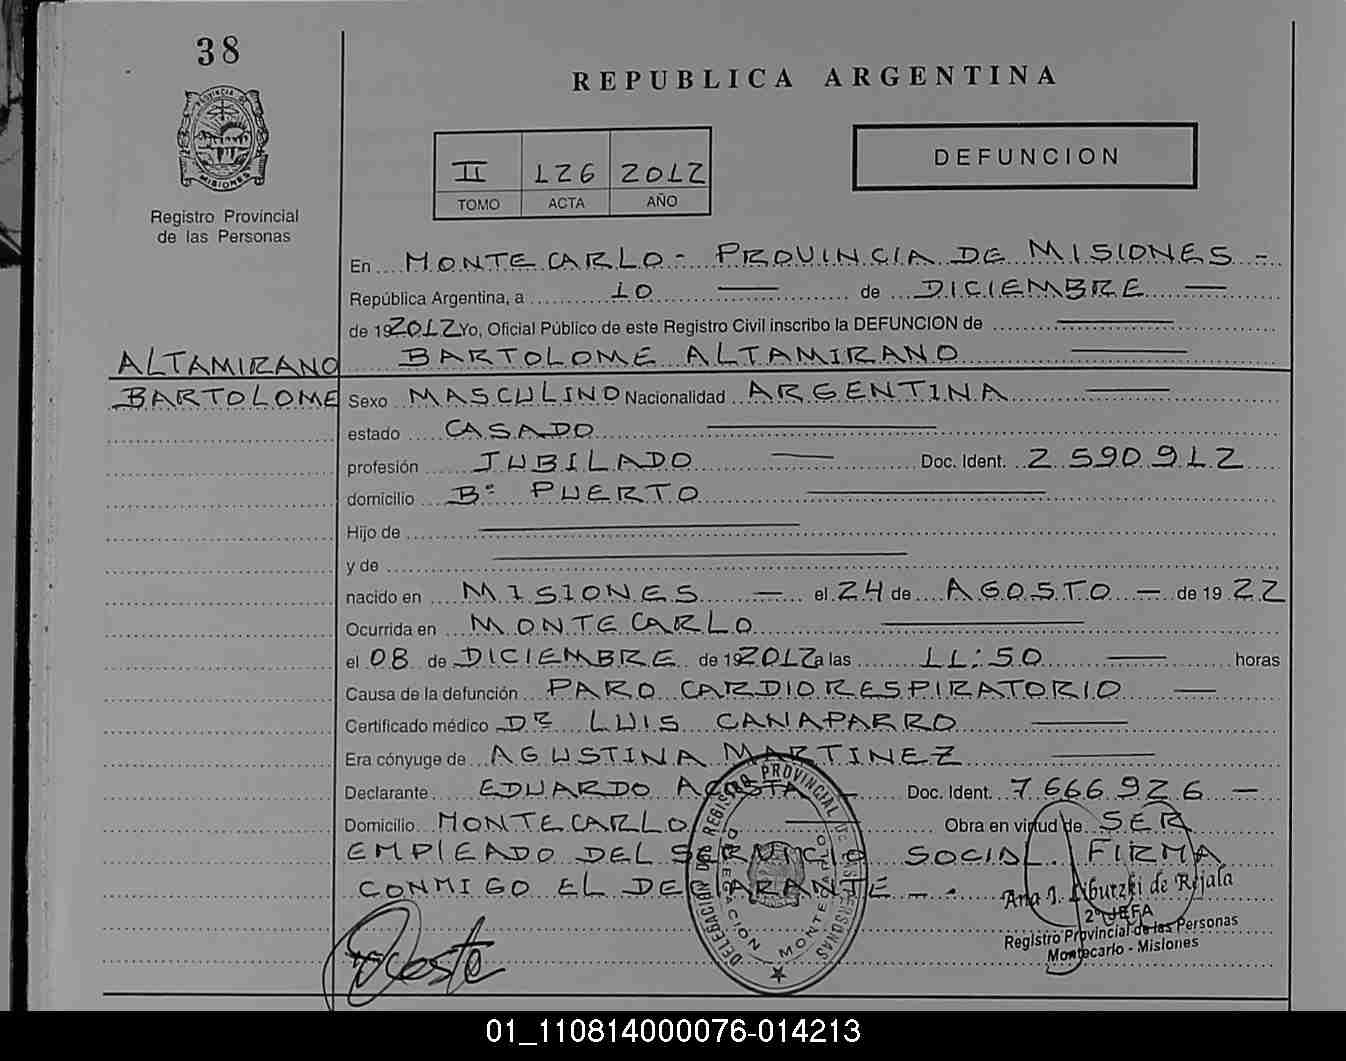 38
REPUBLICA ARGENTINA
PROVINCIA DE
MISIONES
Registro Provincial
de las Personas
II 126 2012
TOMO ACTA AÑO
DEFUNCION
En MONTECARLO - PROVINCIA DE MISIONES -
República Argentina, a 10 — de DICIEMBRE —
de 192012 Yo, Oficial Público de este Registro Civil inscribo la DEFUNCION de —
ALTAMIRANO
BARTOLOME
BARTOLOME ALTAMIRANO —
Sexo MASCULINO Nacionalidad ARGENTINA —
estado CASADO —
profesión JUBILADO — Doc. Ident. 2 590 912
domicilio Bº PUERTO —
Hijo de —
y de —
nacido en MISIONES — el 24 de AGOSTO — de 19 22
Ocurrida en MONTECARLO —
el 08 de DICIEMBRE de 192012 a las 11:50 — horas
Causa de la defunción PARO CARDIORESPIRATORIO —
Certificado médico Dr LUIS CANAPARRO —
Era cónyuge de AGUSTINA MARTINEZ —
Declarante EDUARDO ACOSTA — Doc. Ident. 7 666 926 —
Domicilio MONTECARLO — Obra en virtud de SER
EMPLEADO DEL SERVICIO SOCIAL. FIRMA
CONMIGO EL DECLARANTE - .
DELEGACION DEL REGISTRO PROVINCIAL DE LAS PERSONAS
DELEGACION MONTECARLO
Acosta
Ana I. Liburzki de Rejala
2º JEFA
Registro Provincial de las Personas
Montecarlo - Misiones
01_110814000076-014213